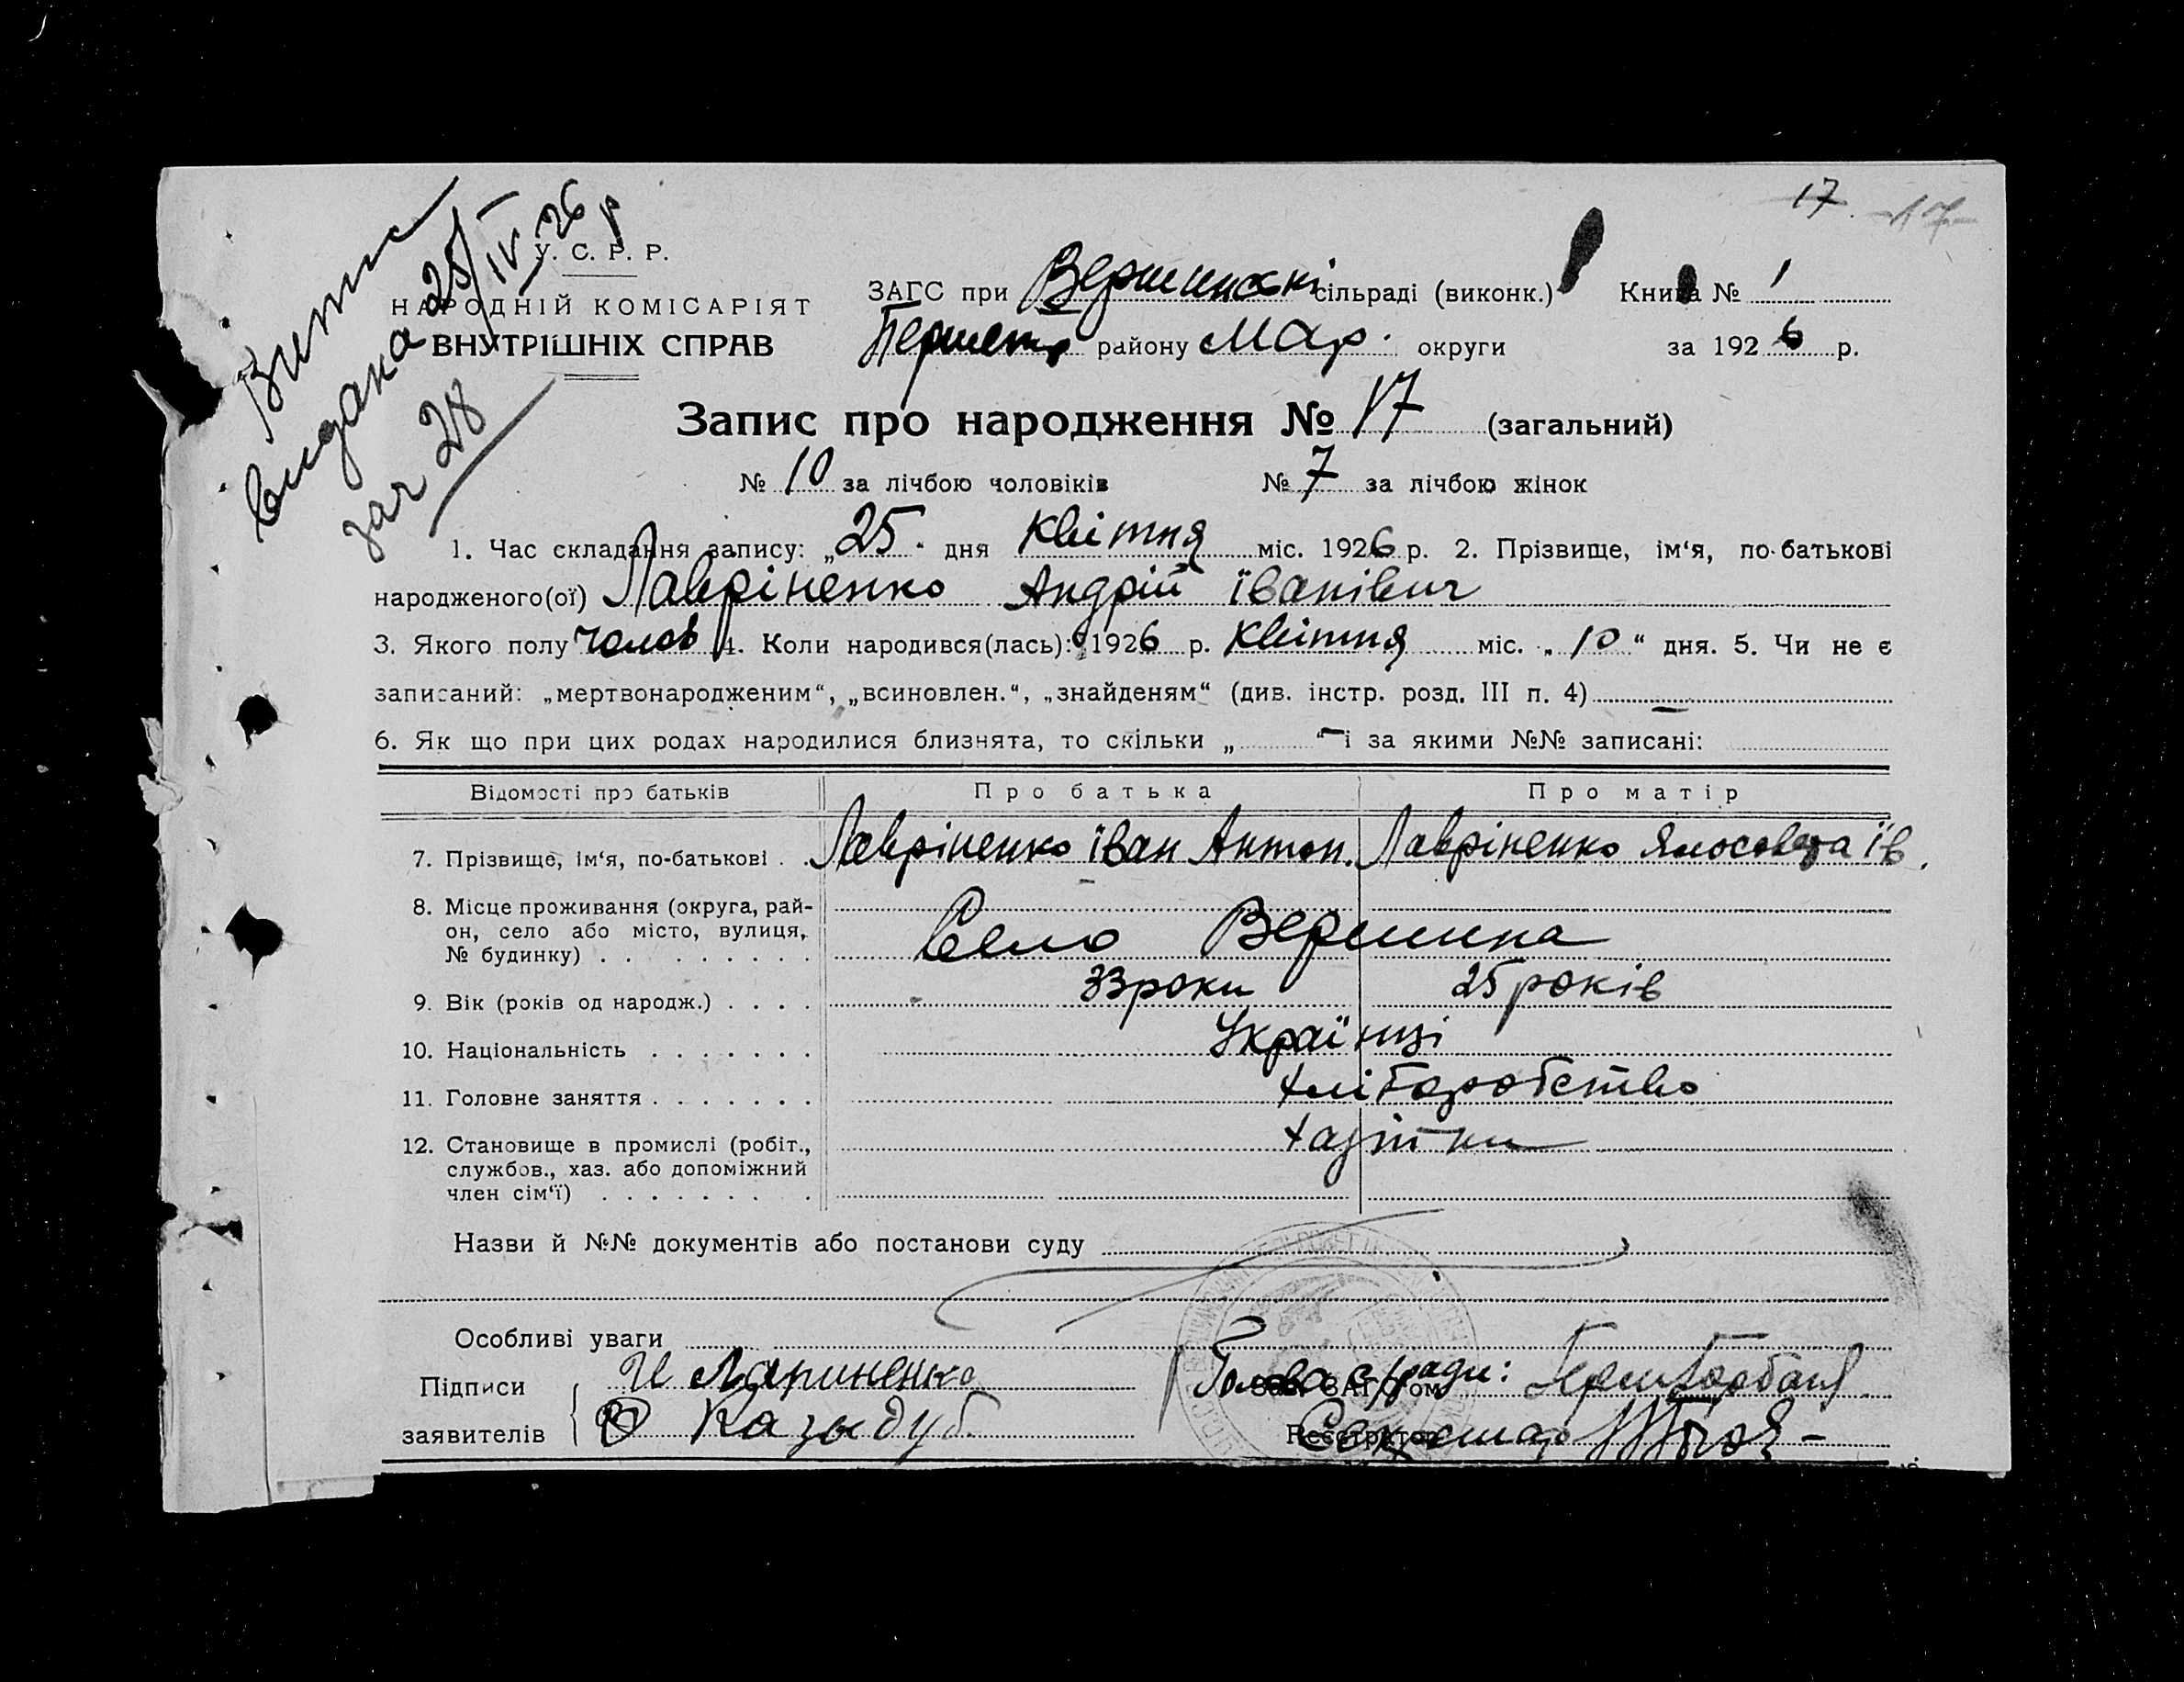 17. 17
Витис
видана 25/IV 26 р
зач 28
У. С. Р. Р.
НАРОДНІЙ КОМІСАРІЯТ
ВНУТРІШНІХ СПРАВ
ЗАГС при Вершинскі сільраді (виконк.) Книга № 1
району Мар. округи за 1926 р.
Запис про народження № 17 (загальний)
№ 10 за лічбою чоловіків № 7 за лічбою жінок
1. Час складання запису: „25" дня Квітня міс. 1926 р. 2. Прізвище, ім'я, по-батькові
народженого(ої) Лавріненко Андрій Їванівич
3. Якого полу чолов 4. Коли народився(лась): 1926 р. Квітня міс. „10" дня. 5. Чи не є
записаний: „мертвонародженим", „всиновлен.", „знайденям" (див. інстр. розд. III п. 4) —
6. Як що при цих родах народилися близнята, то скільки „ " — і за якими №№ записані:
Відомості про батьків Про батька Про матір
7. Прізвище, ім'я, по-батькові . . Лавріненко Їван Антон. Лавріненко Їв.
8. Місце проживання (округа, рай-
он, село або місто, вулиця,
№ будинку) . . . . . . . . . Село Вершина
9. Вік (років од народж.) . . . . 33 роки 25 років
10. Національність . . . . . . . Українці
11. Головне заняття . . . . . . . хліборобство
12. Становище в промислі (робіт.,
службов., хаз. або допоміжний
член сім'ї) . . . . . . . .
Назви й №№ документів або постанови суду
Особливі уваги
Підписи И Лариненко Голова с/ради:
заявителів Казыдуб. Секретар